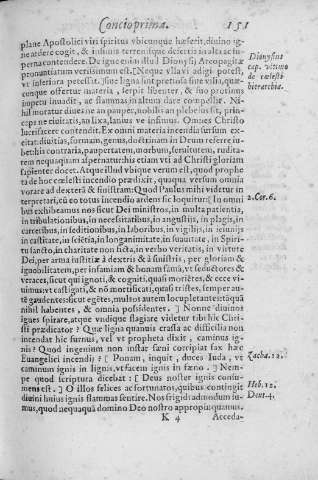 Concio prima. 151
plane Apostolici viri spiritus vbicunque hæserit, diuino ig-
ne ardere cogit, & infimis terrenisque deiectis in alta ac su-
perna contendere. De igne enim illud Dionysij Areopagitæ
pronuntiatum verissimum est. [Neque vllavi adigi potest,
vt inferiora petat.] sine ligna sint pretiosa siue vilia, quæ-
cunque offertur materia, serpit libenter, & suo protinus
impetu inuadit, ac flammas in altum dare compellit. Ni-
hil moratur diues ne an pauper, nobilis an plebeius sit, prin-
ceps ne euicatus, an lixa, lanius ve infimus. Omnes Christo
lucrifacere contendit. Ex omni materia incendia sursum ex-
citat: diuitias, formam, genus, doctrinam in Deum referre iu-
bet: his contraria, paupertatem, morbum, seruitutem, rudita-
tem nequaquam aspernatur: his etiam vti ad Christi gloriam
sapienter docet. Atque illud vbique verum est, quod prophe-
ta de hoc cælesti incendio prædixit, quaqua versum omnia
vorare ad dexterã & sinistram: Quod Paulus mihi videtur in
terpretari, cũ eo totus incendio ardens sic loquitur: [In omni
bus exhibeamus nos sicut Dei ministros, in multa patientia,
in tribulationibus, in necessitatibus, in angustiis, in plagis, in
carceribus, in seditionibus, in laboribus, in vigiliis, in ieiuniis
in castitate, in scietia, in longanimitate, in suauitate, in Spiri-
tu sancto, in charitate non ficta, in verbo veritatis, in virtute
Dei, per arma iustitiæ à dextris & à sinistris, per gloriam &
ignobilitatem, per infamiam & bonam famã, vt seductores &
veraces, sicut qui ignoti, & cogniti, quasi moriētes, & ecce vi-
uimus: vt castigati, & nõ mortificati, quasi tristes, semper au-
tē gaudentes: sicut egētes, multos autem locupletantes: tãquã
nihil habentes, & omnia possidentes.] Nonne diuinos
ignes spirare, atque vndique flagrare videtur tibi hic Chri-
sti prædicator? Quæ ligna quantuis crassa ac difficilia non
intendat hic furnus, vel vt propheta dixit, caminus ig-
nis? Quod ingenium non instar fœni corripiat fax hæc
Euangelici incendij? [Ponam, inquit, duces Iuda, vt
caminum ignis in lignis, vt facem ignis in fœno.] Nem-
pe quod scriptura dicebat: [Deus noster ignis consu-
mens est.] O illos felices ac fortunatos, quibus contingit
diuini huius ignis flammas sentire. Nos frigidi admodum su-
mus, quod nequaquã domino Deo nostro appropinquamus.
K 4 Acceda-
Dionysius
cap. vltimo
de cælesti
hierarchia.
2. Cor. 6.
Zacha. 12.
Heb. 12.
Deut. 4.